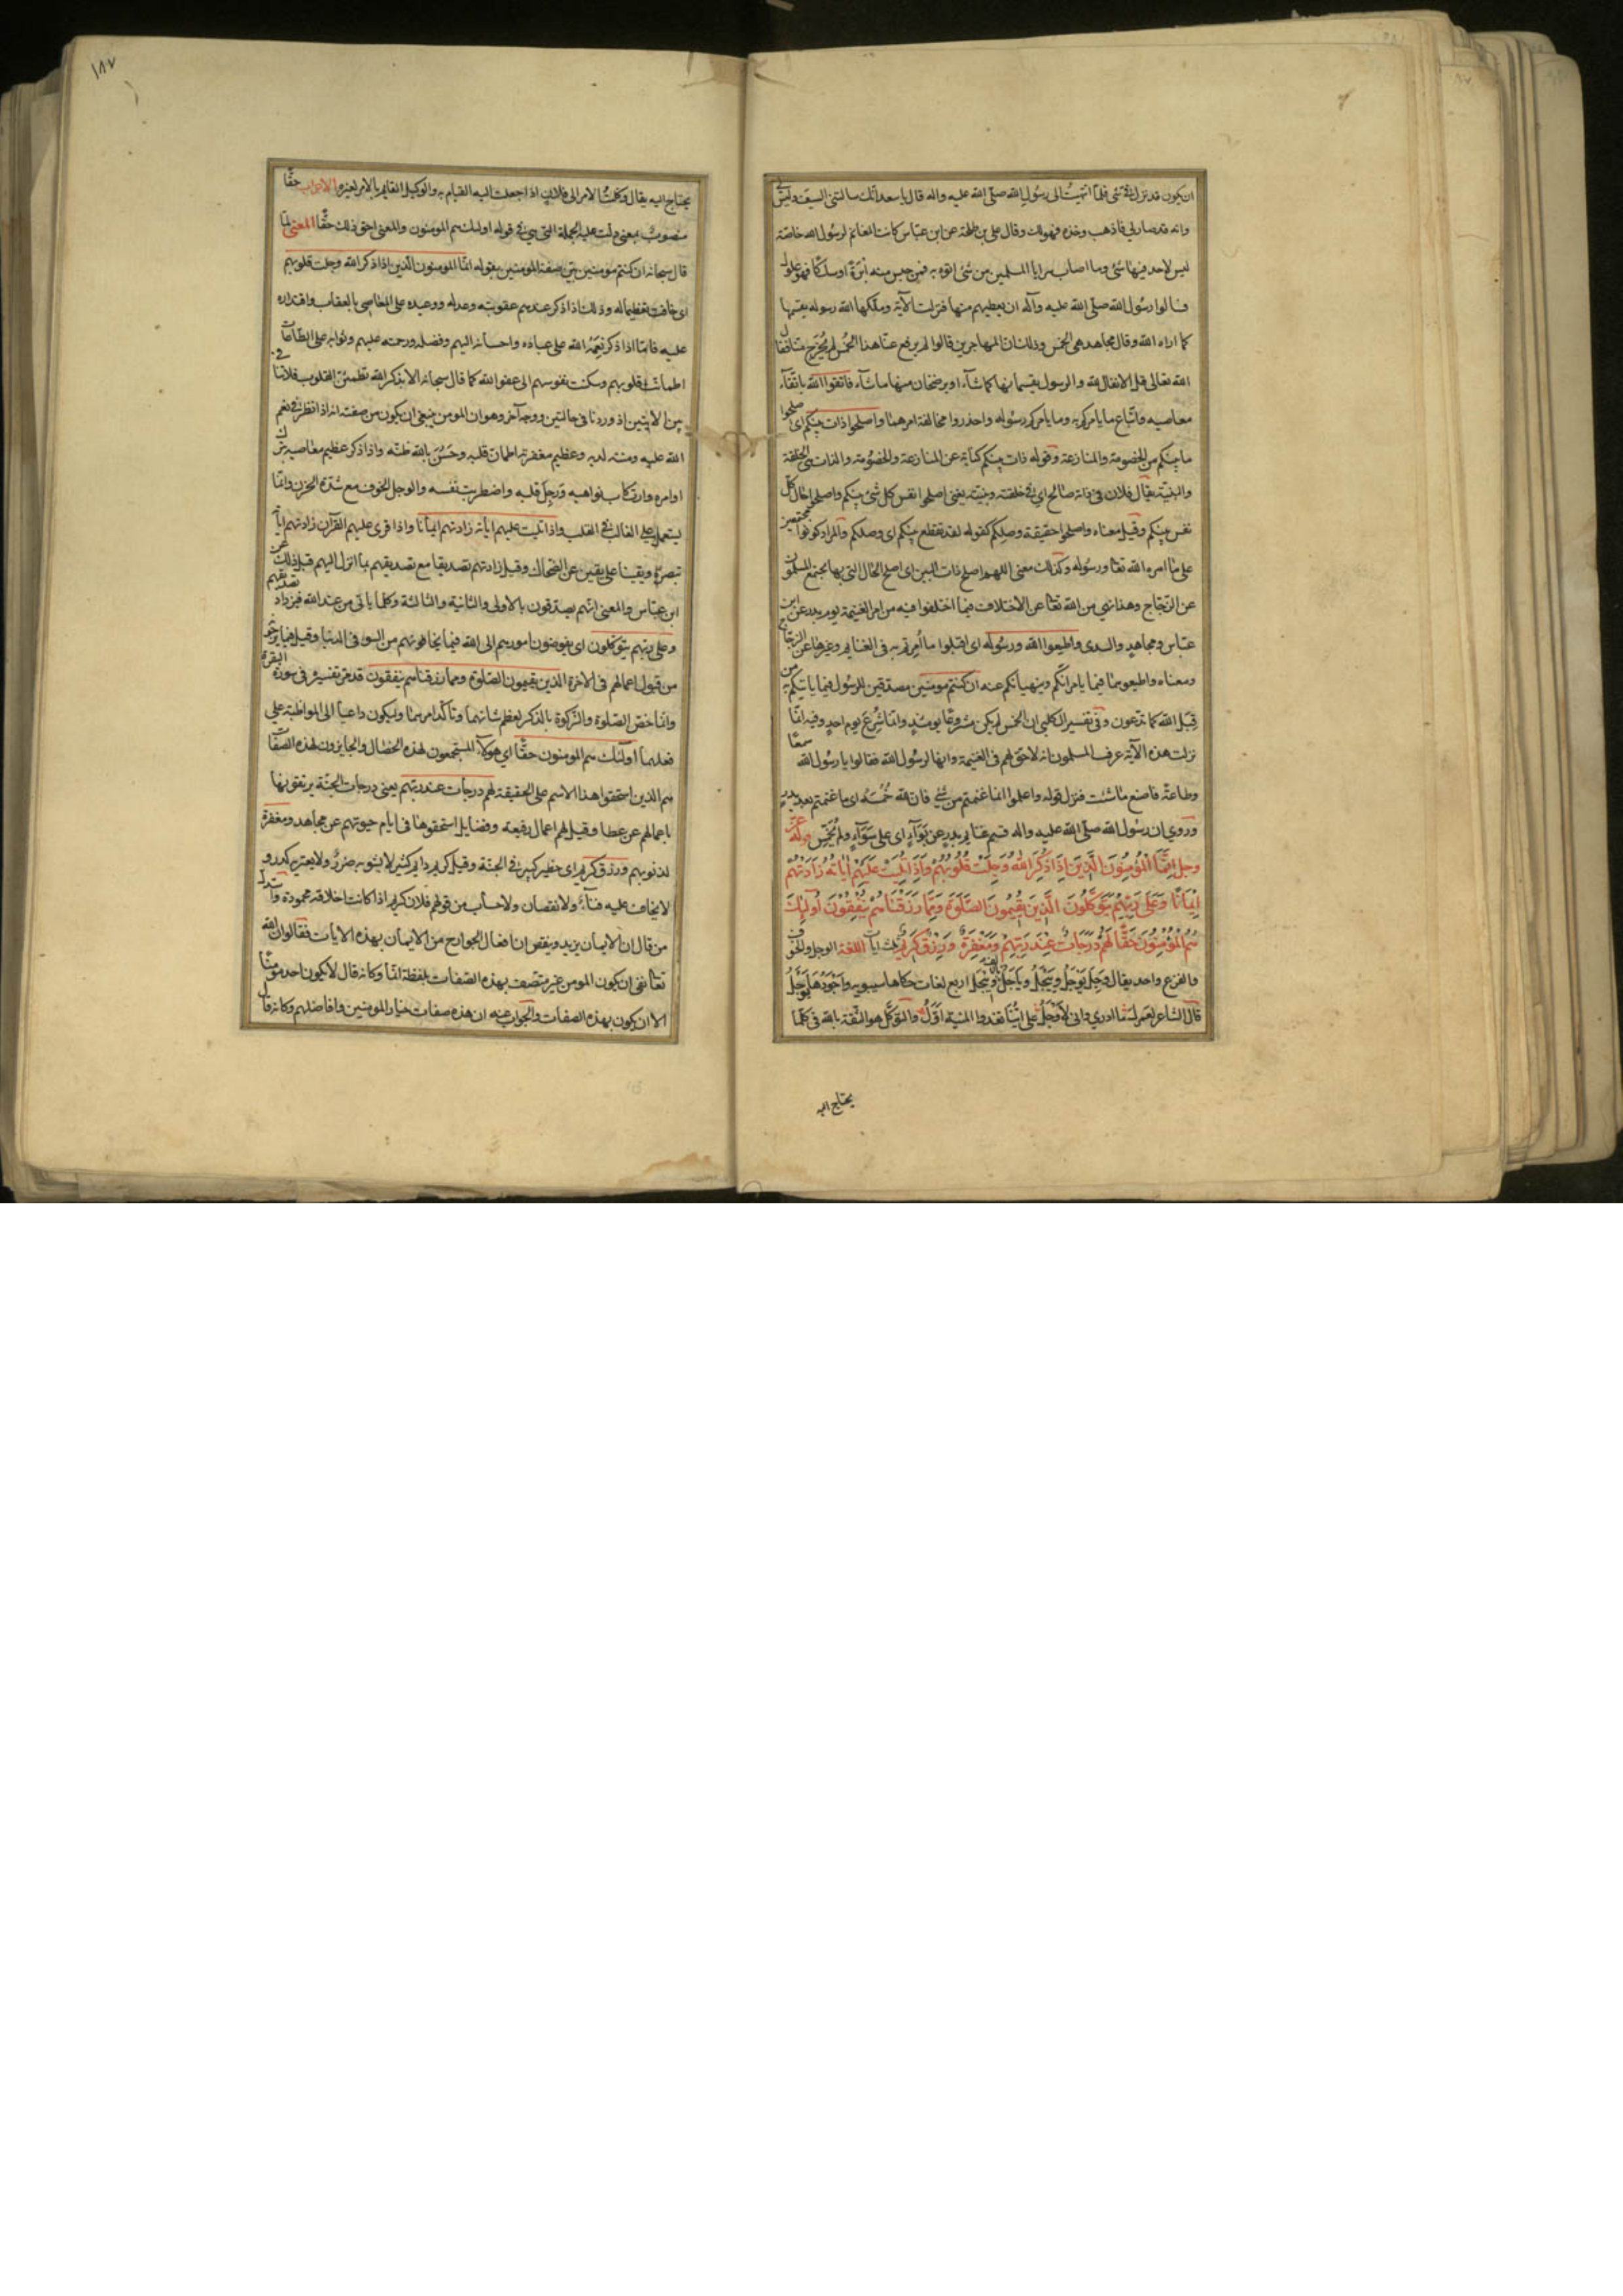 ان يكون قد نزل في شئ فلما انتهيت الى رسول الله صلى الله عليه واله قال يا سعد انك سالتني السيف وليس لي
وانه قد صار لي فاذهب وخذه فهو لك وقال علي بن طلحة عن ابن عباس كانت المغانم لرسول الله خاصة
ليس لاحد فيها شئ وما اصاب سرايا المسلمين من شئ اتوه به فمن حبس منه ابرة او سلكا فهو غلول
فسالوا رسول الله صلى الله عليه وآله ان يعطيهم منها فنزلت الآية وملكها الله رسوله يقسمها
كما اراه الله وقال مجاهد هي الخمس وذلك ان المهاجرين قالوا لم يرفع عنا هذا الخمس لم يخرج منا فقال
الله تعالى قل الانفال لله والرسول يقسمانها كما شاآ او يرضخان منها ما شاآ فاتقوا الله باتقآء
معاصيه واتباع ما يامركم به وما يامركم رسوله واحذروا مخالفة امرهما واصلحوا ذات بينكم اي صلحوا
ما بينكم من الخصومة والمنازعة وقوله ذات بينكم كناية عن المنازعة والخصومة والذات هي الخلقة
والبنية يقال فلان في ذاته صالح اي في خلقته وبنيته يعني اصلحوا نفس كل شئ بينكم واصلحوا حال كل
نفس بينكم وقيل معناه واصلحوا حقيقة وصلكم كقوله لقد تقطع بينكم اي وصلكم والمراد كونوا مجتمعين
على ما امر الله تعا ورسوله وكذلك معنى اللهم اصلح ذات البين اى اصلح الحال التي بها يجتمع المسلمون
عن الزجاج وهذا نهي من الله تعا عن الاختلاف فيما اختلفوا فيه من امر الغنيمة يوم بدر عن ابن
عباس ومجاهد والسدى واطيعوا الله ورسوله اى اقبلوا ما امرتم به في الغنايم وغيرها عن الزجاج
ومعناه واطيعوهما فيما يامرانكم وينهيانكم عنه ان كنتم مومنين مصدقين للرسول فيما ياتيكم به من
قبل الله كما تدعون وفي تفسير الكلبي ان الخمس لم يكن مشروعا يومئذ وانما شرع يوم احد وفيه انما
نزلت هذه الآية عرف المسلمون انه لا حق لهم في الغنيمة وانها لرسول الله فقالوا يا رسول الله سمعا
وطاعة فاصنع ما شئت فنزل قوله واعلموا انما غنمتم من شئ فان لله خمسه اى ما غنمتم بعد بدر
وروي ان رسول الله صلى الله عليه واله قسم غنايم بدر عن بوآء اى على سوآء ولم يخمس قوله عز
وجل اِنَّمَا الْمُؤْمِنُونَ الَّذِينَ اِذَا ذُكِرَ اللهُ وَجِلَتْ قُلُوبُهُمْ وَاِذَا تُلِيَتْ عَلَيْهِمْ اٰيَاتُهُ زَادَتْهُمْ
اِيْمَانًا وَعَلَى رَبِّهِمْ يَتَوَكَّلُونَ الَّذِينَ يُقِيمُونَ الصَّلٰوةَ وَمِمَّا رَزَقْنَاهُمْ يُنْفِقُونَ اُولٰئِكَ
هُمُ الْمُؤْمِنُونَ حَقًّا لَهُمْ دَرَجَاتٌ عِنْدَ رَبِّهِمْ وَمَغْفِرَةٌ وَرِزْقٌ كَرِيمٌ ثلث ايات اللغة الوجل والخوف
والفزع واحد يقال وجل يوجل وييجل وياجل وييجل اربع لغات حكاها سيبويه واجودها يوجل
قال الشاعر لعمرك ما ادري واني لاوجل على اينا تغدوا المنية اول والتوكل هو الثقة بالله في كل ما
يحتاج اليه
يحتاج اليه يقال وكلت الامر الى فلان اذا جعلت اليه القيام به والوكيل القايم بالامر لغيره الاعراب حقا
منصوب بمعنى دلت عليه الجملة التي هي في قوله اولئك هم المومنون والمعنى احق ذلك حقا المعنى لما
قال سبحانه ان كنتم مومنين بين صفة المومنين بقوله انما المومنون الذين اذا ذكر الله وجلت قلوبهم
اى خافت تعظيما له وذلك اذا ذكر عندهم عقوبته وعدله ووعيده على المعاصي بالعقاب واقتداره
عليه فاما اذا ذكر نعمة الله على عباده واحسانه اليهم وفضله ورحمته عليهم وثوابه على الطاعات
اطمأنت قلوبهم وسكنت نفوسهم الى عفو الله كما قال سبحانه الا بذكر الله تطمئن القلوب فلا تنافي
بين الآيتين اذ وردتا في حالتين ووجه آخر وهو ان المومن ينبغي ان يكون من صفته انه اذا نظر في نعم
الله عليه ومننه لديه وعظيم مغفرته اطمأن قلبه وحسن بالله ظنه واذا ذكر عظيم معاصيه بترك
اوامره وارتكاب نواهيه وجل قلبه واضطربت نفسه والوجل الخوف مع شدة الحزن وانما
يستعمل على الغالب في القلب واذا تليت عليهم آياته زادتهم ايمانا واذا قرئ عليهم القرآن زادتهم آياته
تبصرة ويقينا على يقين عن الضحاك وقيل زادتهم تصديقا مع تصديقهم بما انزل اليهم قبل ذلك عن
ابن عباس والمعنى انهم يصدقون بالاولى والثانية والثالثة وكلما ياتي من عند الله فيزداد تصديقهم
وعلى ربهم يتوكلون اى يفوضون امورهم الى الله فيما يخافونهم من السوء في الدنيا وقيل فيما يرجون
من قبول اعمالهم في الاخرة الذين يقيمون الصلوة ومما رزقناهم ينفقون قد مر تفسيره في سورة البقرة
وانما خص الصلوة والزكوة بالذكر لعظم شانهما وتاكد امرهما وليكون داعيا الى المواظبة على
فعلهما اولئك هم المومنون حقا اي هولآء المستجمعون لهذه الخصال والحايزون لهذه الصفات
هم الذين استحقوا هذا الاسم على الحقيقة لهم درجات عند ربهم يعني درجات الجنة يرتقونها
باعمالهم عن عطا وقيل لهم اعمال رفيعة وفضايل استحقوها في ايام حيوتهم عن مجاهد ومغفرة
لذنوبهم ورزق كريم اى خطير كبير في الجنة وقيل كريم دايم كثير لا يشوبه ضرر ولا يعتريه كدر و
لا يخاف عليه فنآء ولا نقصان ولا حساب من قولهم فلان كريم اذا كانت اخلاقه محمودة واستدل
من قال ان الايمان يزيد وينقص ان افعال الجوارح من الايمان بهذه الايات فقالوا ان الله
تعا نفى ان يكون المومن غير متصف بهذه الصفات بلفظة انما وكانه قال لا يكون احد مومنا
الا ان يكون بهذه الصفات والجواب عنه ان هذه صفات خيار المومنين وافاضلهم وكانه قال
١٨٧